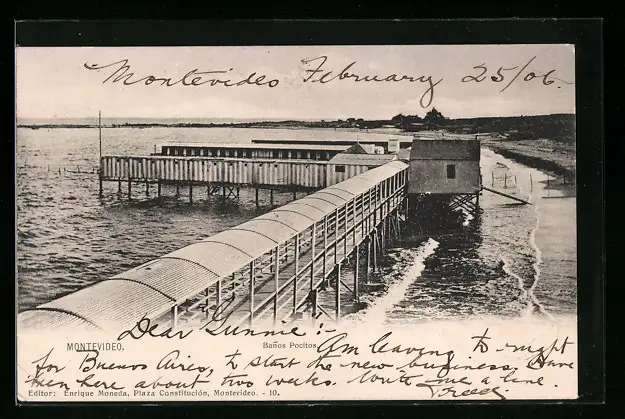 Montevideo February 25/06.
Dear Gunnie :-
MONTEVIDEO.
Baños Pocitos.
Am leaving to-night
for Buenos Aires, to start the new business, Have
been here about two weeks. Write me a line.
Fred
Editor: Enrique Moneda, Plaza Constitución, Montevideo. - 10.